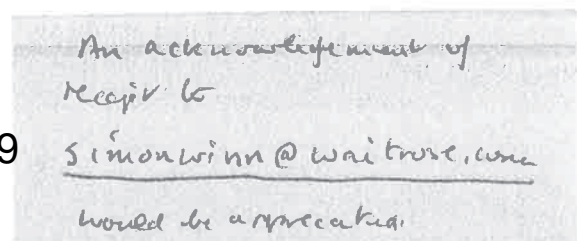 An acknowledgement of
receipt to
9 simonwinn@waitrose.com
would be appreciated.